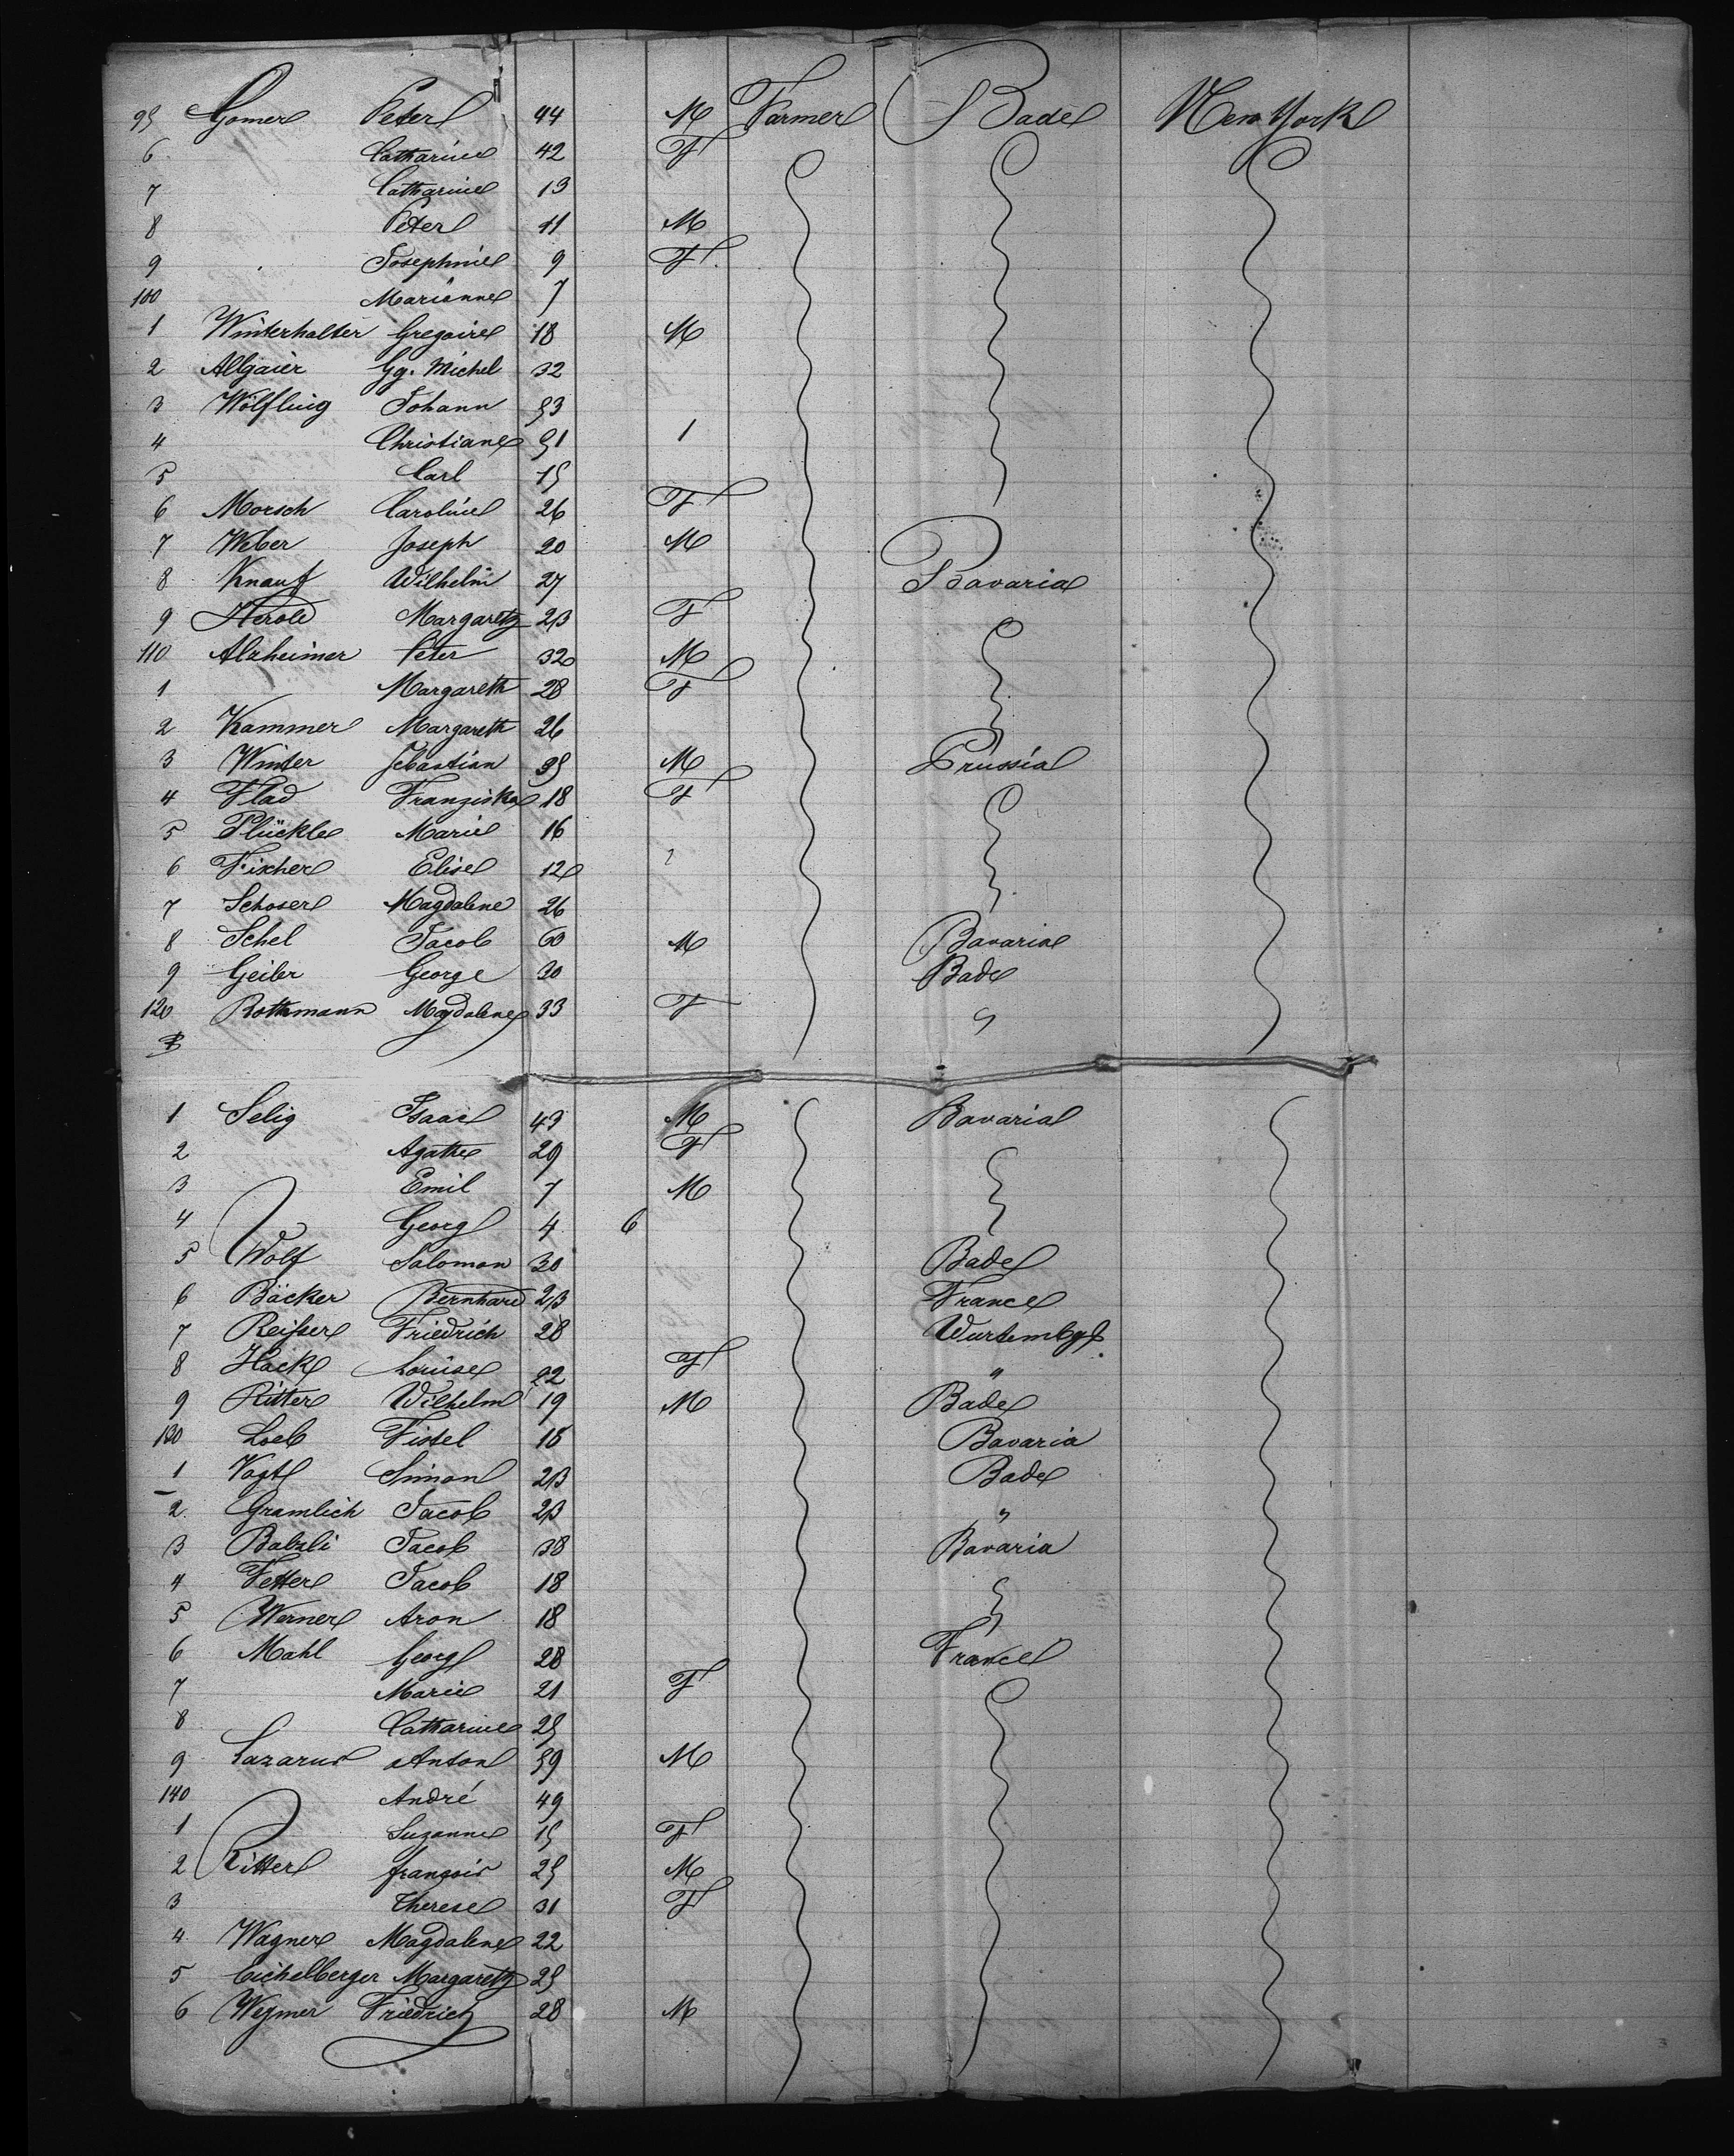 95 Gomer Peter 44 M Farmer Bade New York
6 Catharine 42 F
7 Catharine 13
8 Peter 11 M
9 Josephine 9 F
100 Marianne 7
1 Winterhalter Gregoire 18 M
2 Allgaier Gg. Michel 32
3 Wölfling Johann 53
4 Christiane 51 1
5 Carl 15
6 Morsch Caroline 26 F
7 Weber Joseph 20 M
8 Knauf Wilhelm 27 Bavaria
9 Herold Margareth 23 F
110 Alzheimer Peter 32 M
1 Margareth 28 F
2 Kammer Margareth 26
3 Winter Sebastian 35 M Prussia
4 Flad Franziska 18 F
5 Plückle Marie 16
6 Fischer Elise 12
7 Schoser Magdalene 26
8 Schel Jacob 60 M Bavaria
9 Geiler George 30 Bade
120 Rothmann Magdalene 33 F "
1 Selig Isaac 43 M Bavaria
2 Agathe 29 F
3 Emil 7 M
4 Georg 4 6
5 Wolf Salomon 30 Bade
6 Bäcker Bernhard 23 France
7 Reifser Friedrich 28 Wurtembg
8 Hack Louise 22 F "
9 Ritter Wilhelm 19 M Bade
130 Loeb Fistel 18 Bavaria
1 Vogt Simon 23 Bade
2 Gramlich Jacob 23 "
3 Balzli Jacob 38 Bavaria
4 Fetter Jacob 18
5 Werner Aron 18
6 Mahl Georg 28 France
7 Marie 21 F
8 Catharine 25
9 Lazarus Anton 59 M
140 André 49
1 Suzanne 15 F
2 Ritter françois 25 M
3 Therese 31 F
4 Wagner Magdalene 22
5 Eichelberger Margareth 25
6 Weymer Friedrich 28 M